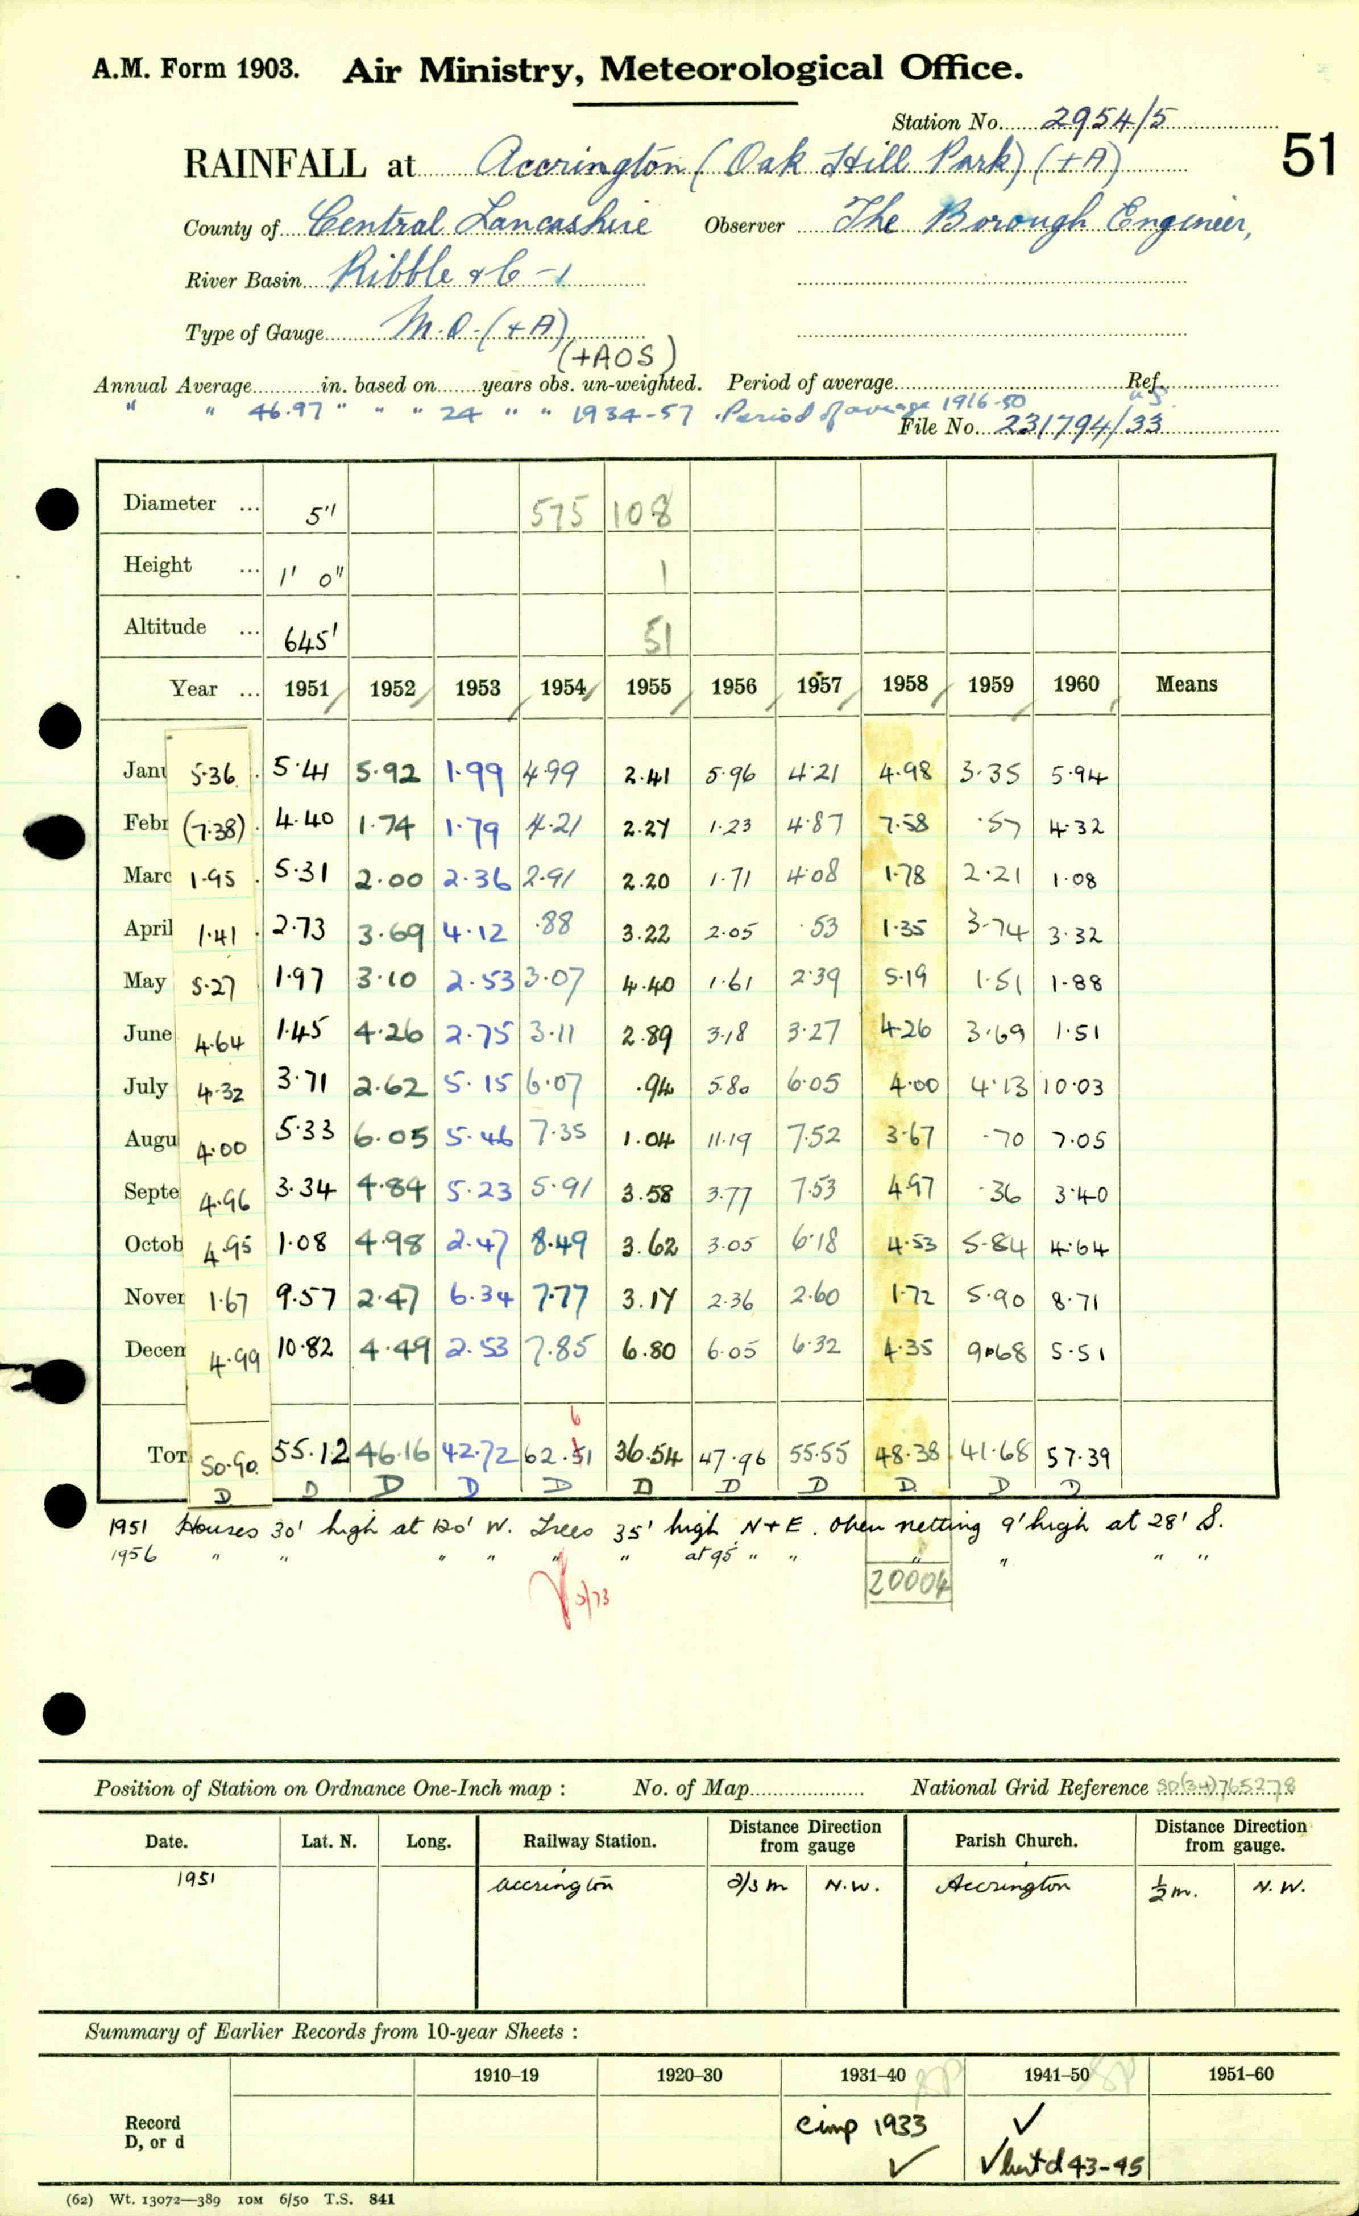 A.M. Form 1903. Air Ministry, Meteorological Office.
Station No. 2954/5
51
RAINFALL at Accrington (Oak Hill Park) (+A)
County of Central Lancashire Observer The Borough Engineer,
River Basin Ribble & C -1
Type of Gauge M.O. (+A)
(+AOS)
Annual Average in. based on years obs. un-weighted. Period of average Ref.
" " 46.97 " " " 24 " " " 1934-57 . Period of average 1916-50
File No. 231794/33
Diameter ... 5" 575 108
Height ... 1' 0" 1
Altitude ... 645' 51
Year ... 1951 1952 1953 1954 1955 1956 1957 1958 1959 1960 Means
Janu 5.36 5.41 5.92 1.99 4.99 2.41 5.96 4.21 4.98 3.35 5.94
Febr (7.38) 4.40 1.74 1.79 4.21 2.27 1.23 4.87 7.58 .57 4.32
Marc 1.95 5.31 2.00 2.36 2.91 2.20 1.71 4.08 1.78 2.21 1.08
April 1.41 2.73 3.69 4.12 .88 3.22 2.05 .53 1.35 3.74 3.32
May 5.27 1.97 3.10 2.53 3.07 4.40 1.61 2.39 5.19 1.51 1.88
June 4.64 1.45 4.26 2.75 3.11 2.89 3.18 3.27 4.26 3.69 1.51
July 4.32 3.71 2.62 5.15 6.07 .94 5.80 6.05 4.00 4.13 10.03
Augu 4.00 5.33 6.05 5.46 7.35 1.04 11.19 7.52 3.67 .70 7.05
Septe 4.96 3.34 4.84 5.23 5.91 3.58 3.77 7.53 4.97 .36 3.40
Octob 4.95 1.08 4.98 2.47 8.49 3.62 3.05 6.18 4.53 5.84 4.64
Nover 1.67 9.57 2.47 6.34 7.77 3.17 2.36 2.60 1.72 5.90 8.71
Decen 4.99 10.82 4.49 2.53 7.85 6.80 6.05 6.32 4.35 9.68 5.51
6
Tot 50.90 55.12 46.16 42.72 62.51 36.54 47.96 55.55 48.38 41.68 57.39
D D D D D D D D D D D
1951 Houses 30' high at 120' W. Trees 35' high N + E. Open netting 9' high at 28' S.
1956 " " " " " " at 95 " " " " " "
5/73
20004
Position of Station on Ordnance One-Inch map : No. of Map National Grid Reference SD(34)765278
Date. Lat. N. Long. Railway Station. Distance Direction from gauge Parish Church. Distance Direction from gauge.
1951 Accrington 2/3 m N.W. Accrington 1/2 m. N.W.
Summary of Earlier Records from 10-year Sheets :
1910–19 1920–30 1931–40 1941–50 1951–60
Record
D, or d
1933 ✓
✓ ✓ but d 43-45
(62) Wt. 13072—389 10M 6/50 T.S. 841